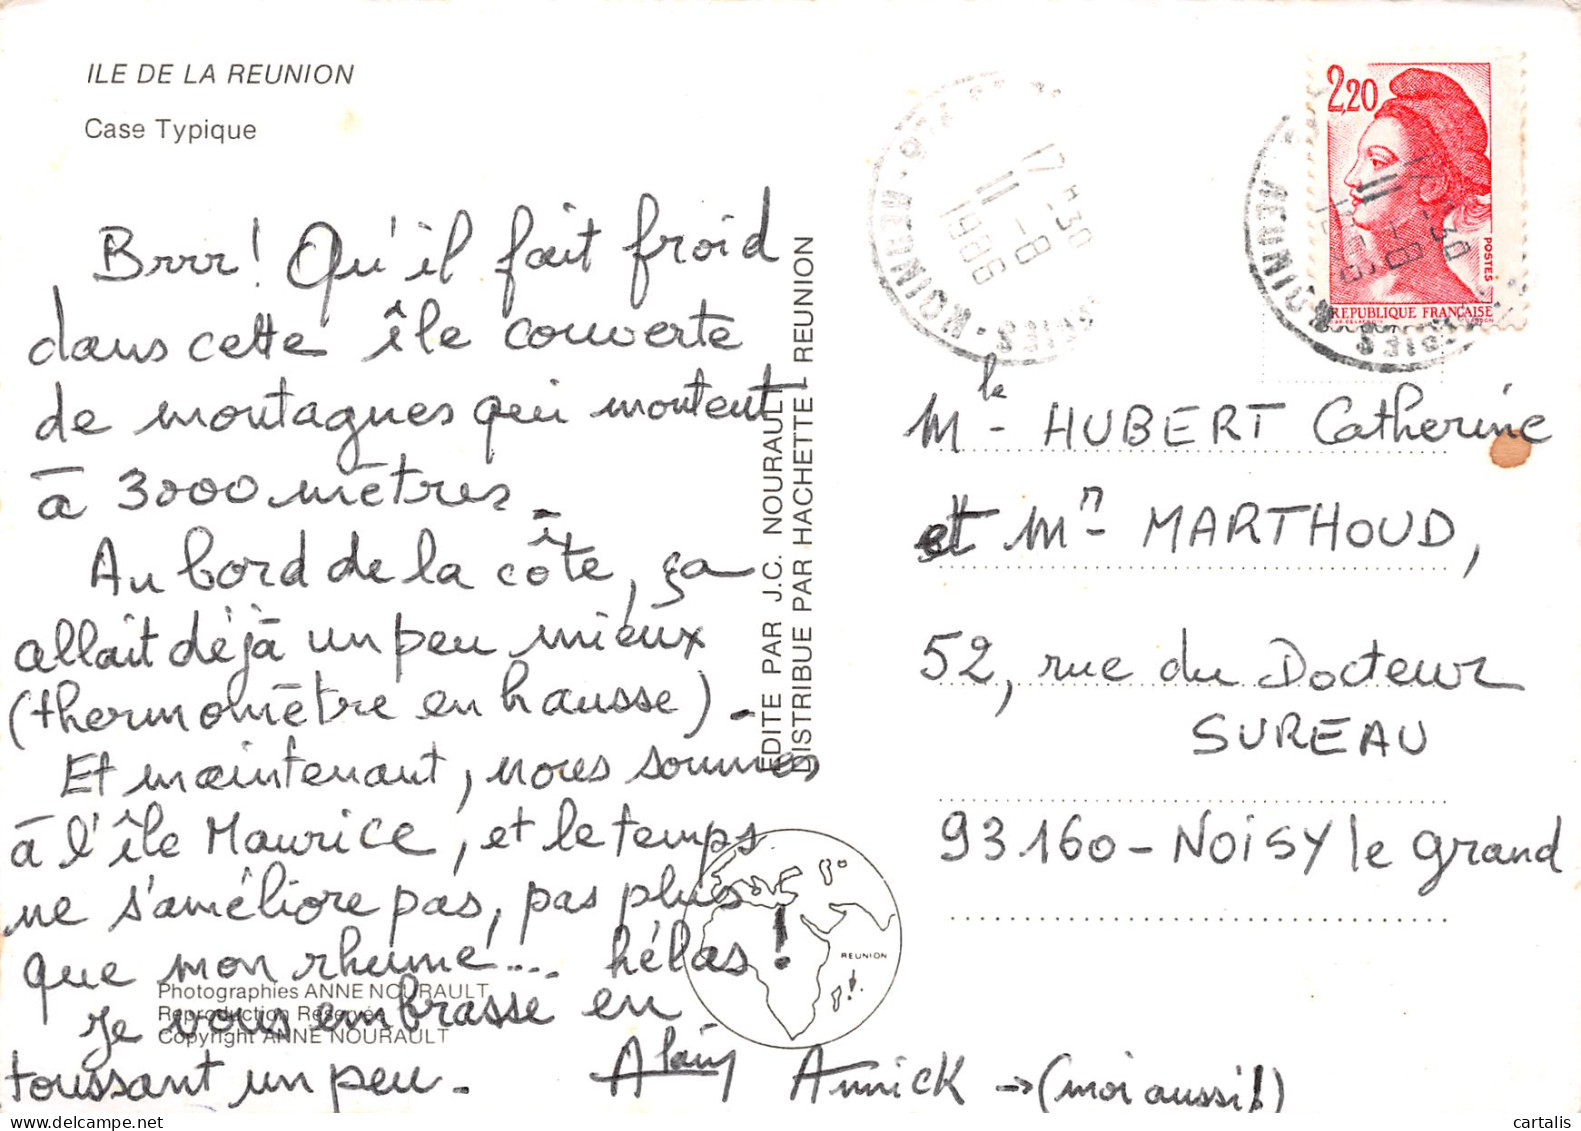 ILE DE LA REUNION
Case Typique
Brrr! Qu'il fait froid
dans cette île couverte
de montagnes qui montent
à 3000 mètres.
Au bord de la côte, ça
allait déjà un peu mieux
(thermomètre en hausse).
Et maintenant, nous sommes
à l'île Maurice, et le temps
ne s'améliore pas, pas plus
que mon rhume... hélas!
Je vous embrasse en
toussant un peu.
Alain Annick → (moi aussi!)
Photographies ANNE NOURAULT
Reproduction Réservée
Copyright ANNE NOURAULT
EDITE PAR J.C. NOURAULT
DISTRIBUE PAR HACHETTE - REUNION
REUNION
17 H 30
11 - 8
1986
REUNION
2,20
POSTES
REPUBLIQUE FRANÇAISE
17 H 30
11 - 8
1986
REUNION
Mle HUBERT Catherine
et Mr MARTHOUD,
52, rue du Docteur
SUREAU
93160 - NOISY le grand
cartalis
delcampe.net